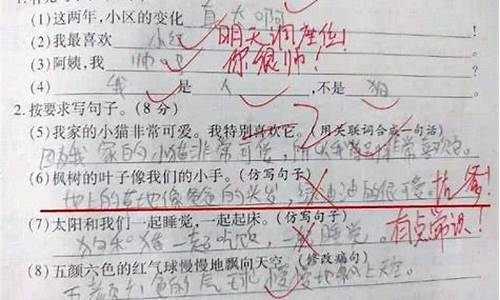 (1)这两年,小区的变化 真大啊
(2)我最喜欢 小红 明天调座位!
(3)阿姨,我 帅吧 你很帅!
(4) 我 是 人 ,不是 狗
2.按要求写句子。(8分)
(5)我家的小猫非常可爱。我特别喜欢它。(用关联词合成一句话)
因为我家的小猫非常可爱,所以我特别非常喜欢它。
(6)枫树的叶子像我们的小手。(仿写句子)
地上的草地像爸爸的头发,绿油油的很可爱。抗爹!
(7)太阳和我们一起睡觉,一起起床。(仿写句子)
狗和猪一起吃饭,一起睡觉。 有点常识!
(8)五颜六色的红气球慢慢地飘向天空。(修改病句)
五颜六色的气球慢慢地飘上天空。